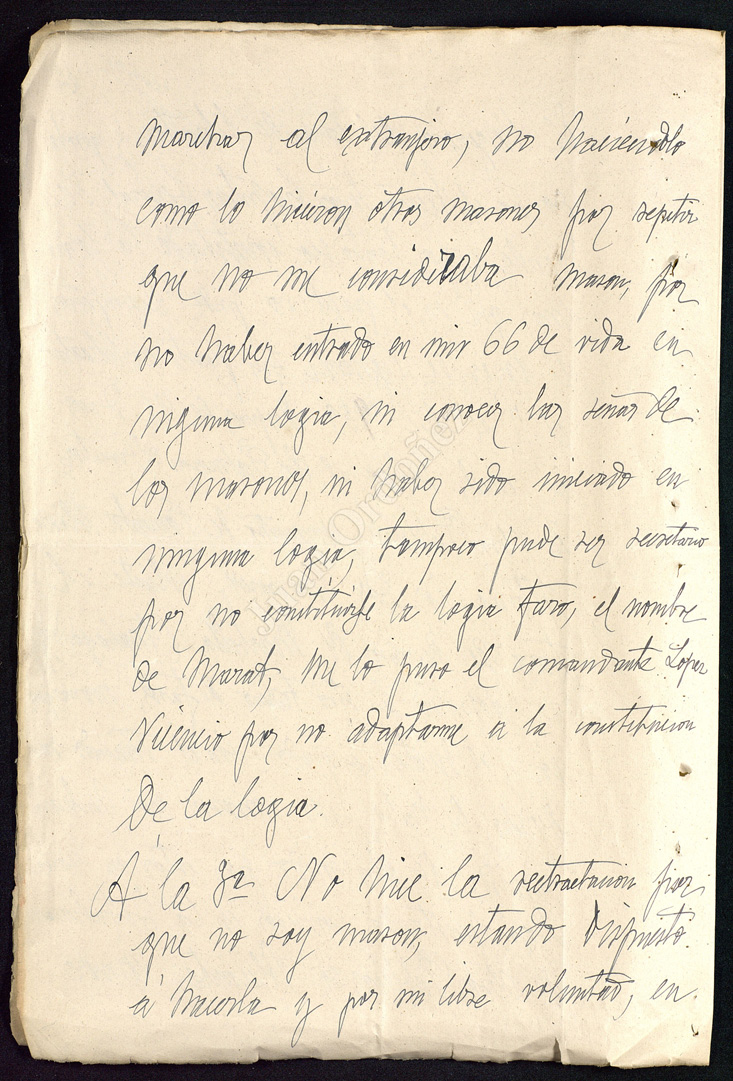 Marchar al extranjero, no haciendolo
como lo hicieron otros masones por repetir
que no me consideraba mason, por
no haber entrado en mis 66 de vida en
niguna logia, ni conocer las señas de
los masones, ni haber sido iniciado en
ninguna logia, tampoco pude ser secretario
por no constituirse la logia Faro, el nombre
de Marat, me lo puso el comandante Lopez
Vicencio por no adaptarme a la constitucion
De la logia.
A la 3a No hice la rectractacion por
que no soy mason, estando dispuesto
á hacerla y por mi libre voluntad, en
Juan Ordoñez